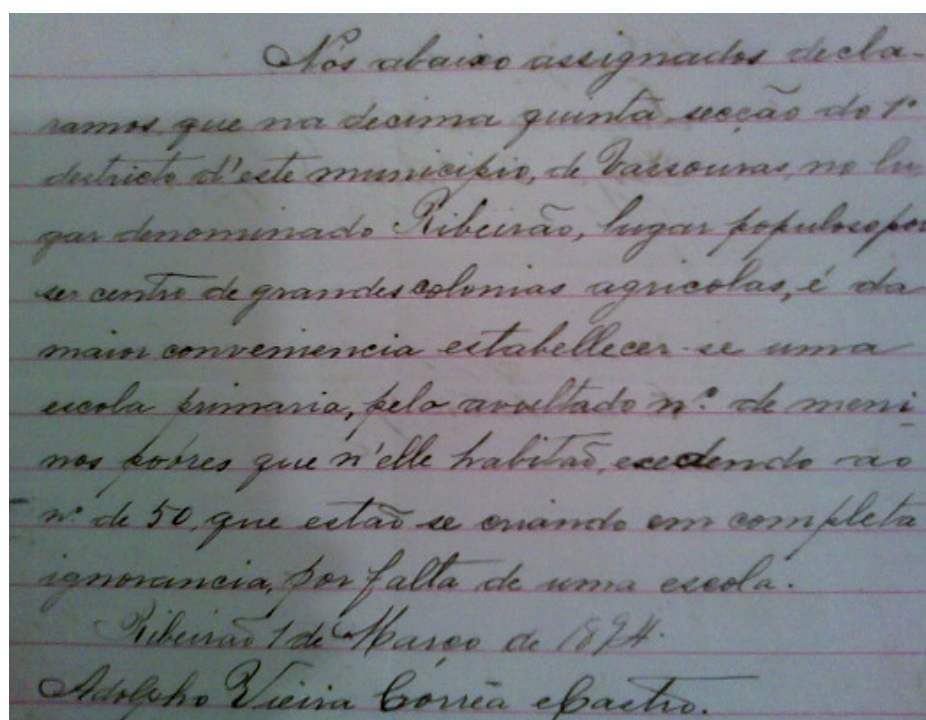 Nós abaixo assignados decla-
ramos que na decima quinta secção do 1º
destricto d'este municipio, de Vassouras, no lu
gar denominado Ribeirão, lugar populoso por
ser centro de grandes colonias agricolas, é da
maior conveniencia estabellecer-se uma
escola primaria, pelo avultado nº de meni
nos póbres que n'elle habitão, excedendo ao
nº de 50, que estão se criando em completa
ignorancia, por falta de uma escola.
Ribeirão 1 de Março de 1894.
Adolpho Vieira Corrêa e Castro.